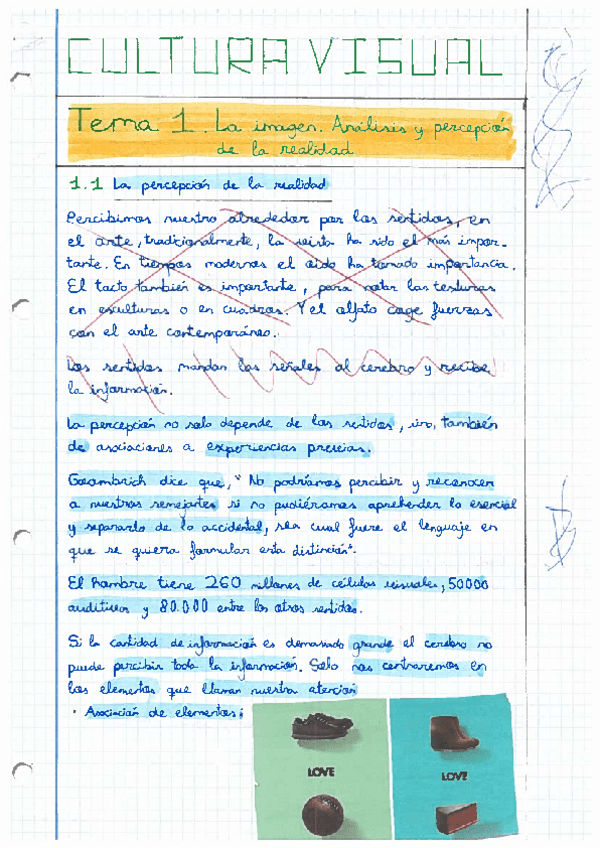 CULTURA VISUAL
Tema 1. La imagen. Análisis y percepción
de la realidad
1.1 La percepción de la realidad
Percibimos nuestro alrededor por los sentidos, en
el arte, tradicionalmente, la vista ha sido el más impor-
tante. En tiempos modernos el oído ha tomado importancia.
El tacto también es importante, para notar las texturas
en esculturas o en cuadros. Y el olfato coge fuerzas
con el arte contemporáneo.
Los sentidos mandan las señales al cerebro y recibe
la información.
La percepción no solo depende de los sentidos, sino, también
de asociaciones a experiencias previas.
Goombrich dice que, "No podríamos percibir y reconocer
a nuestros semejantes si no pudiéramos aprehender lo esencial
y separarlo de lo accidental, sea cual fuere el lenguaje en
que se quiera formular esta distinción".
El hombre tiene 260 millones de células visuales, 50000
auditivas y 80.000 entre los otros sentidos.
Si la cantidad de información es demasiado grande el cerebro no
puede percibir toda la información. Solo nos centraremos en
los elementos que llaman nuestra atención
· Asociación de elementos:
LOVE
LOVE